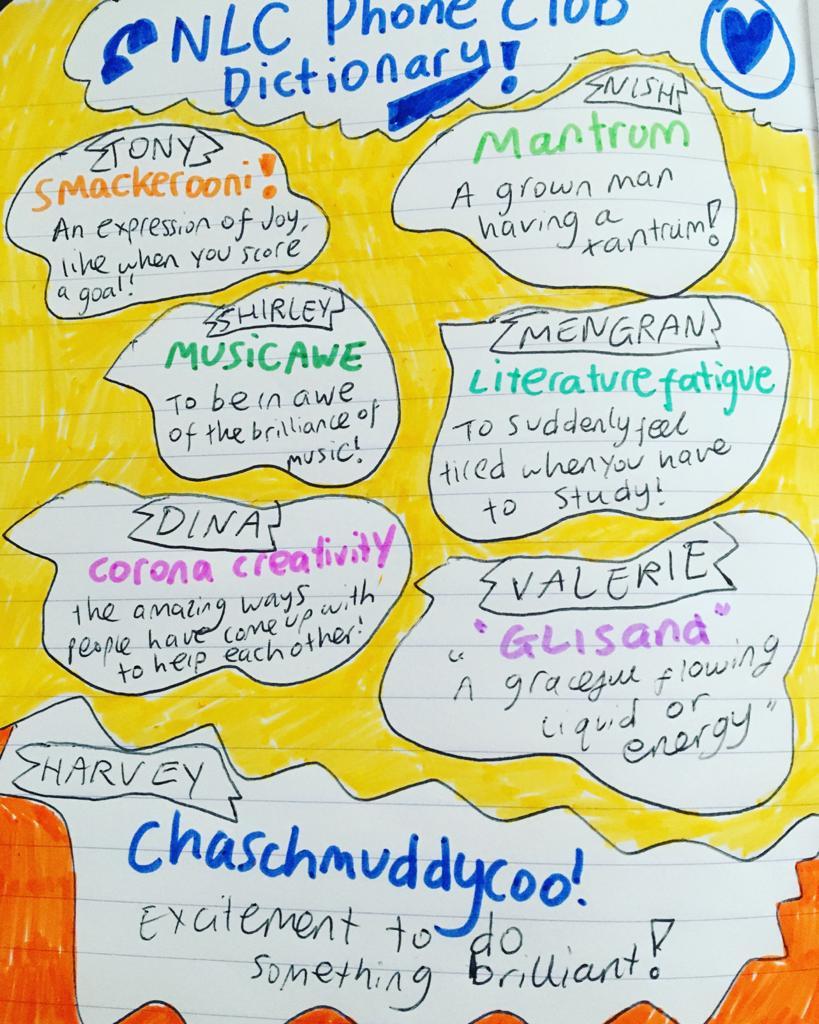 NLC Phone Club
Dictionary!
TONY
Smackerooni!
An expression of Joy,
like when you score
a goal!
NISH
Mantrum
A grown man
having a
tantrum!
SHIRLEY
MUSICAWE
To be in awe
of the brilliance of
music!
MENGRAN
Literature fatigue
To suddenly feel
tired when you have
to study!
DINA
corona creativity
the amazing ways
people have come up with
to help each other!
VALERIE
"GLISana"
"A graceful flowing
liquid or
energy"
HARVEY
Chaschmuddycoo!
Excitement to do
something brilliant!